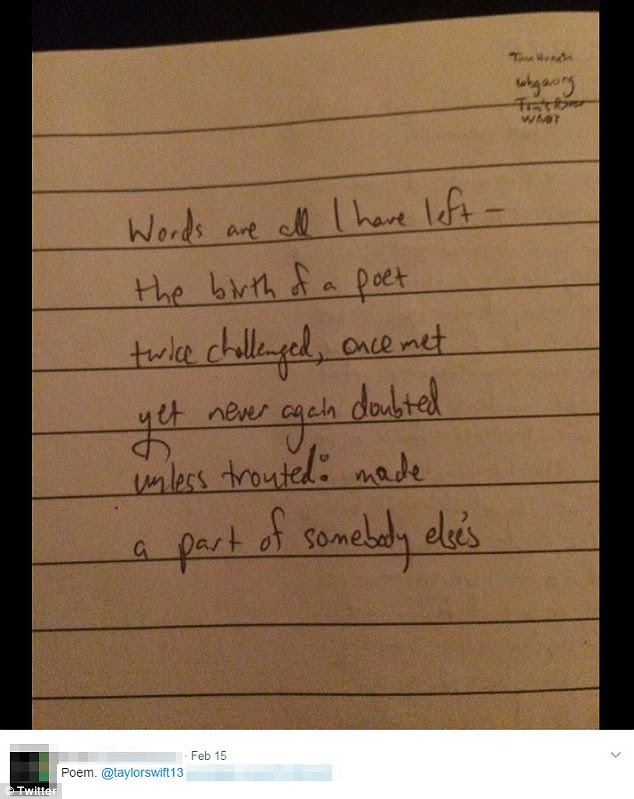 Words are all I have left –
the birth of a poet
twice challenged, once met
yet never again doubted
unless trouted: made
a part of somebody else's
Feb 15
Poem. @taylorswift13
© Twitter